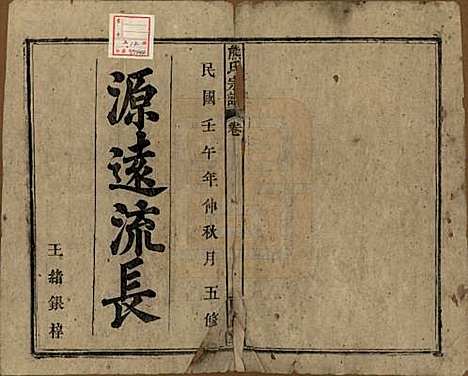 熊氏宗譜
卷
民國壬午年仲秋月五修
源遠流長
王緒銀梓